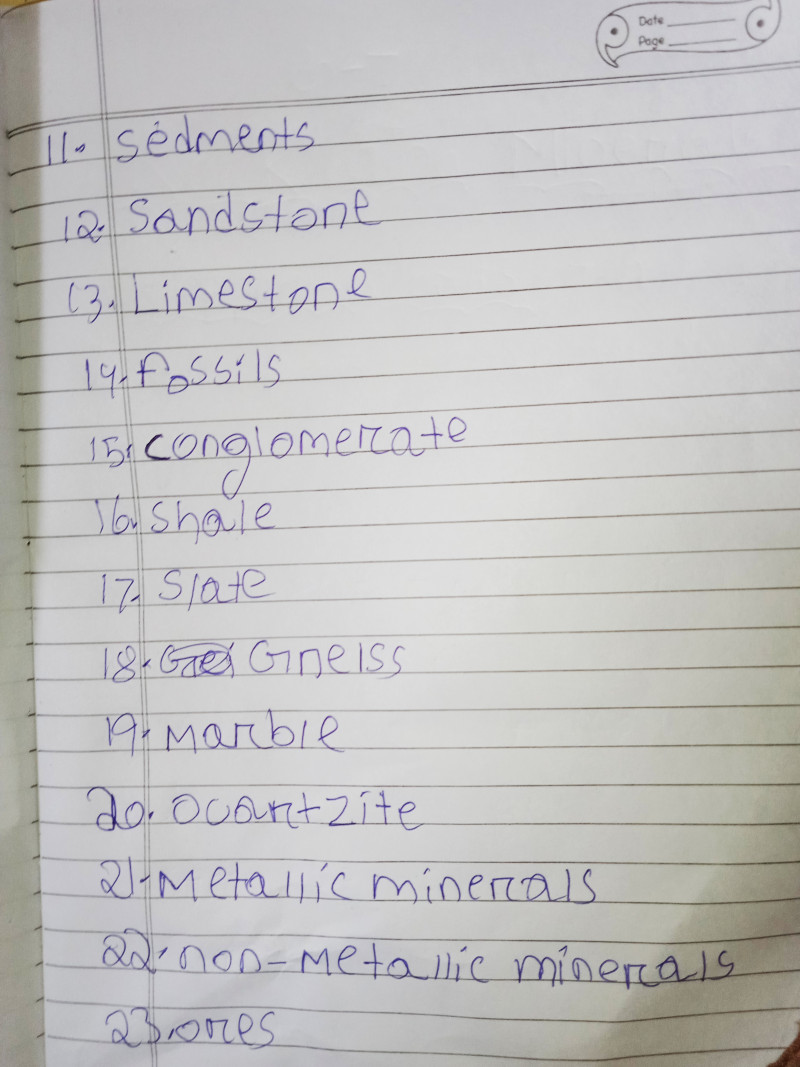 Date
Page
11. sedments
12. Sandstone
13. Limestone
14. fossils
15. conglomerate
16. shale
17. Slate
18. Gneiss
19. Marble
20. Ouartzite
21. Metallic minerals
22. non-metallic minerals
23. ores